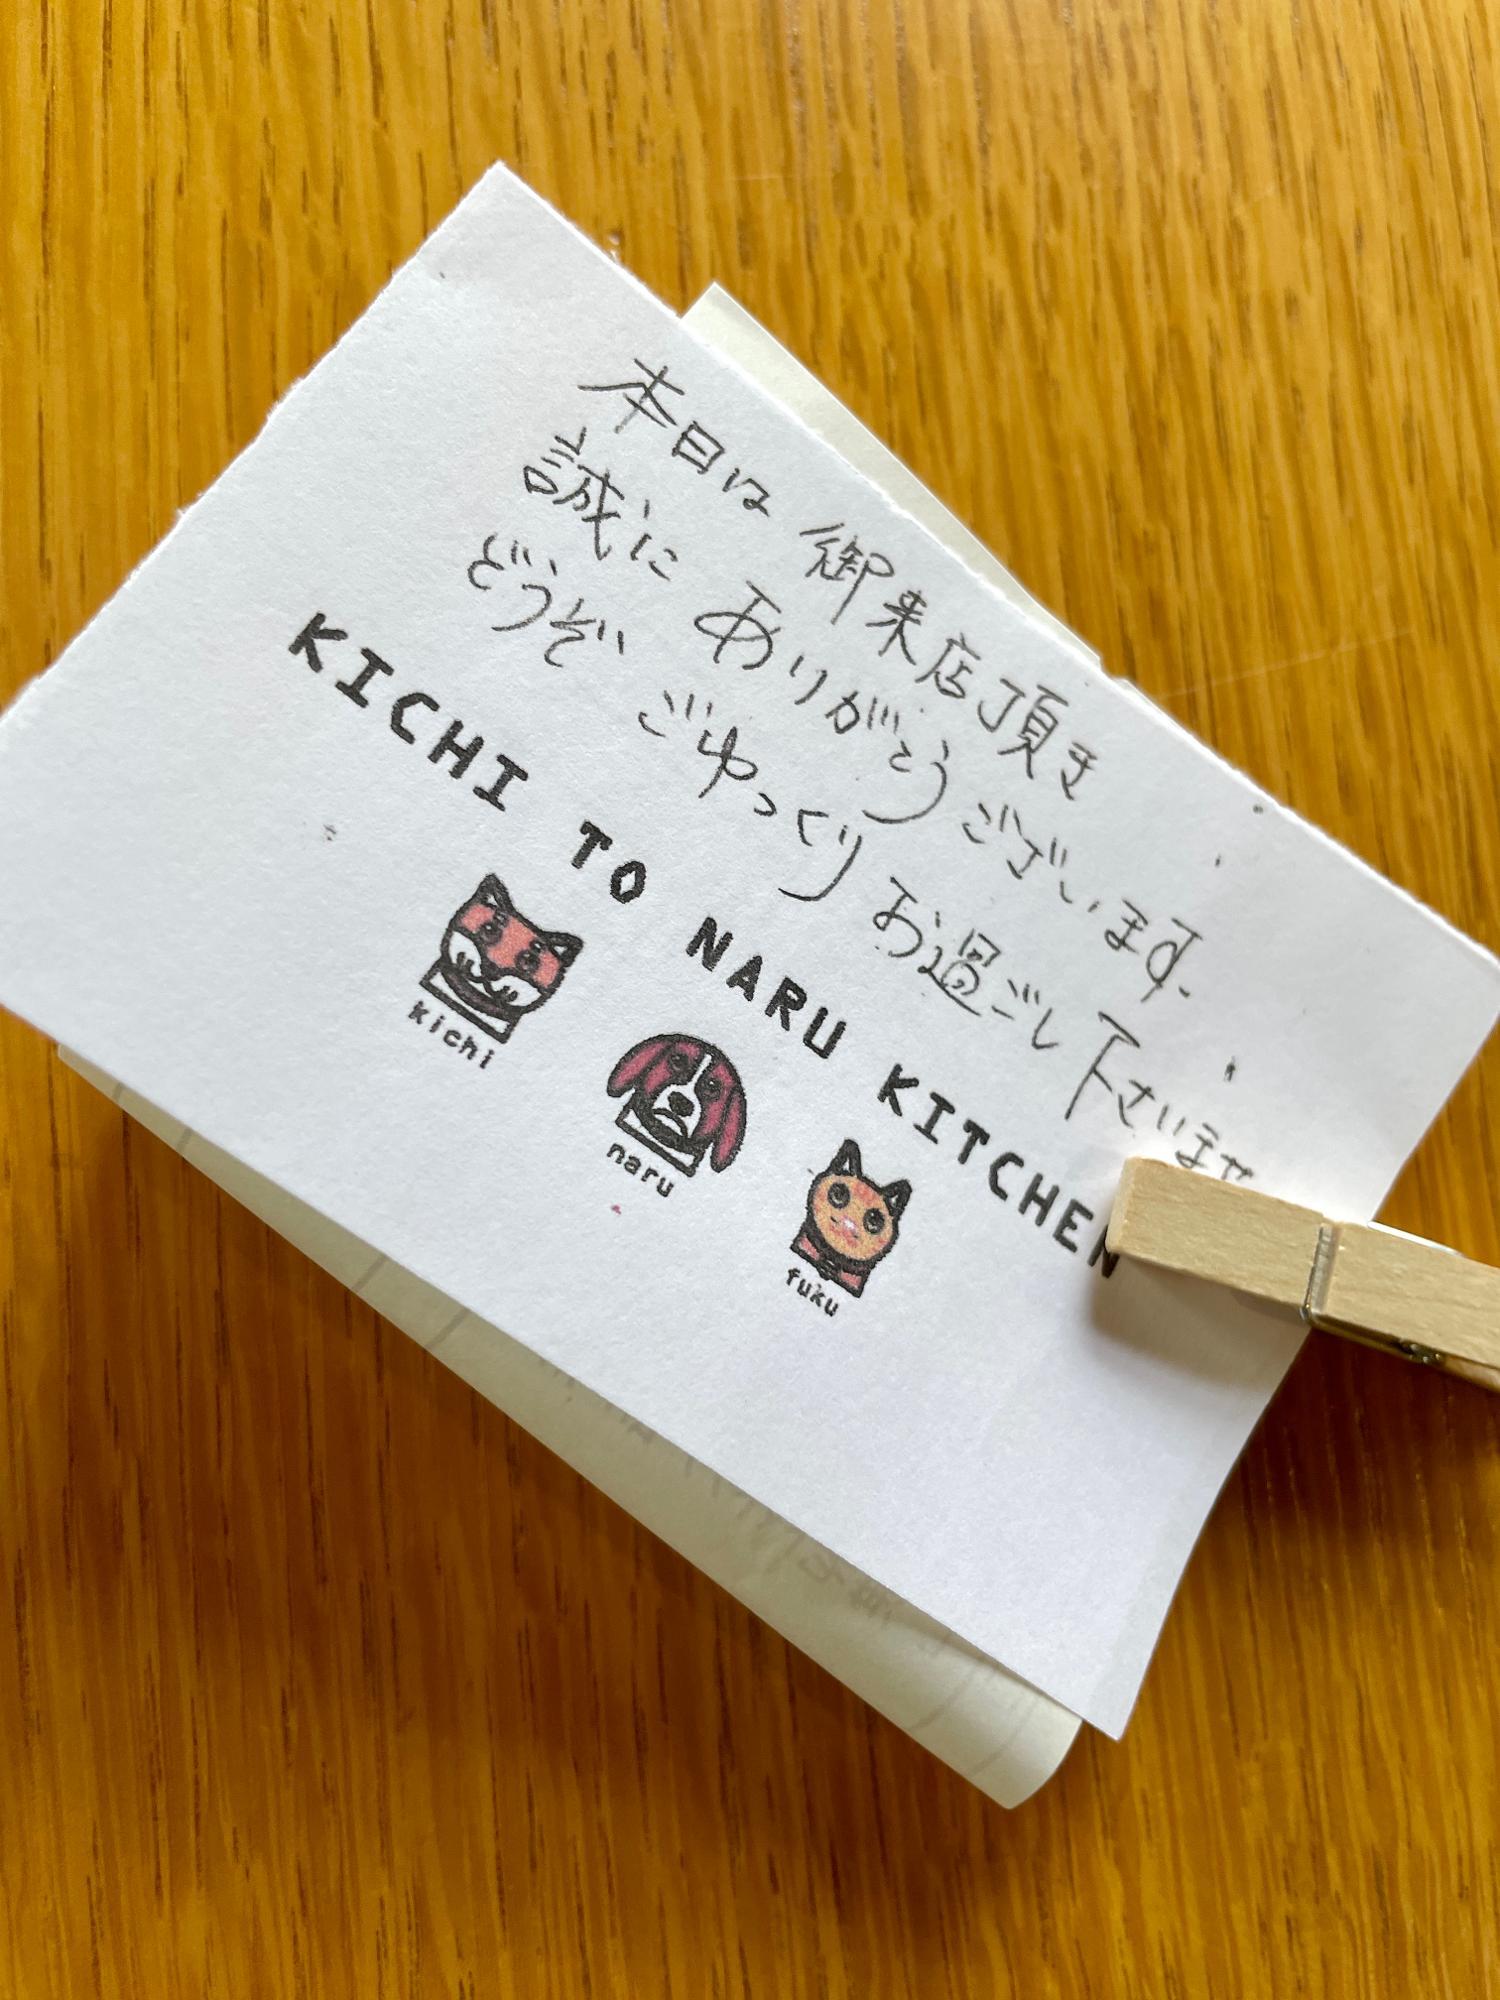 本日は 御来店頂き
誠に ありがとうございます.
どうぞ ごゆっくりお過ごし下さいませ
KICHI TO NARU KITCHEN
kichi
naru
fuku